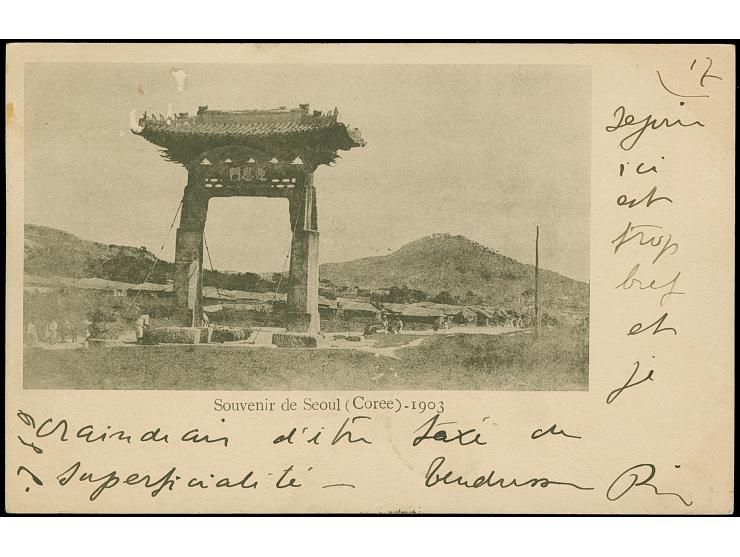 17
Sejour
ici
est
trop
bref
et
je
craindrais d'être taxé de
superficialité —
迎恩門
Souvenir de Seoul (Coree)-1903